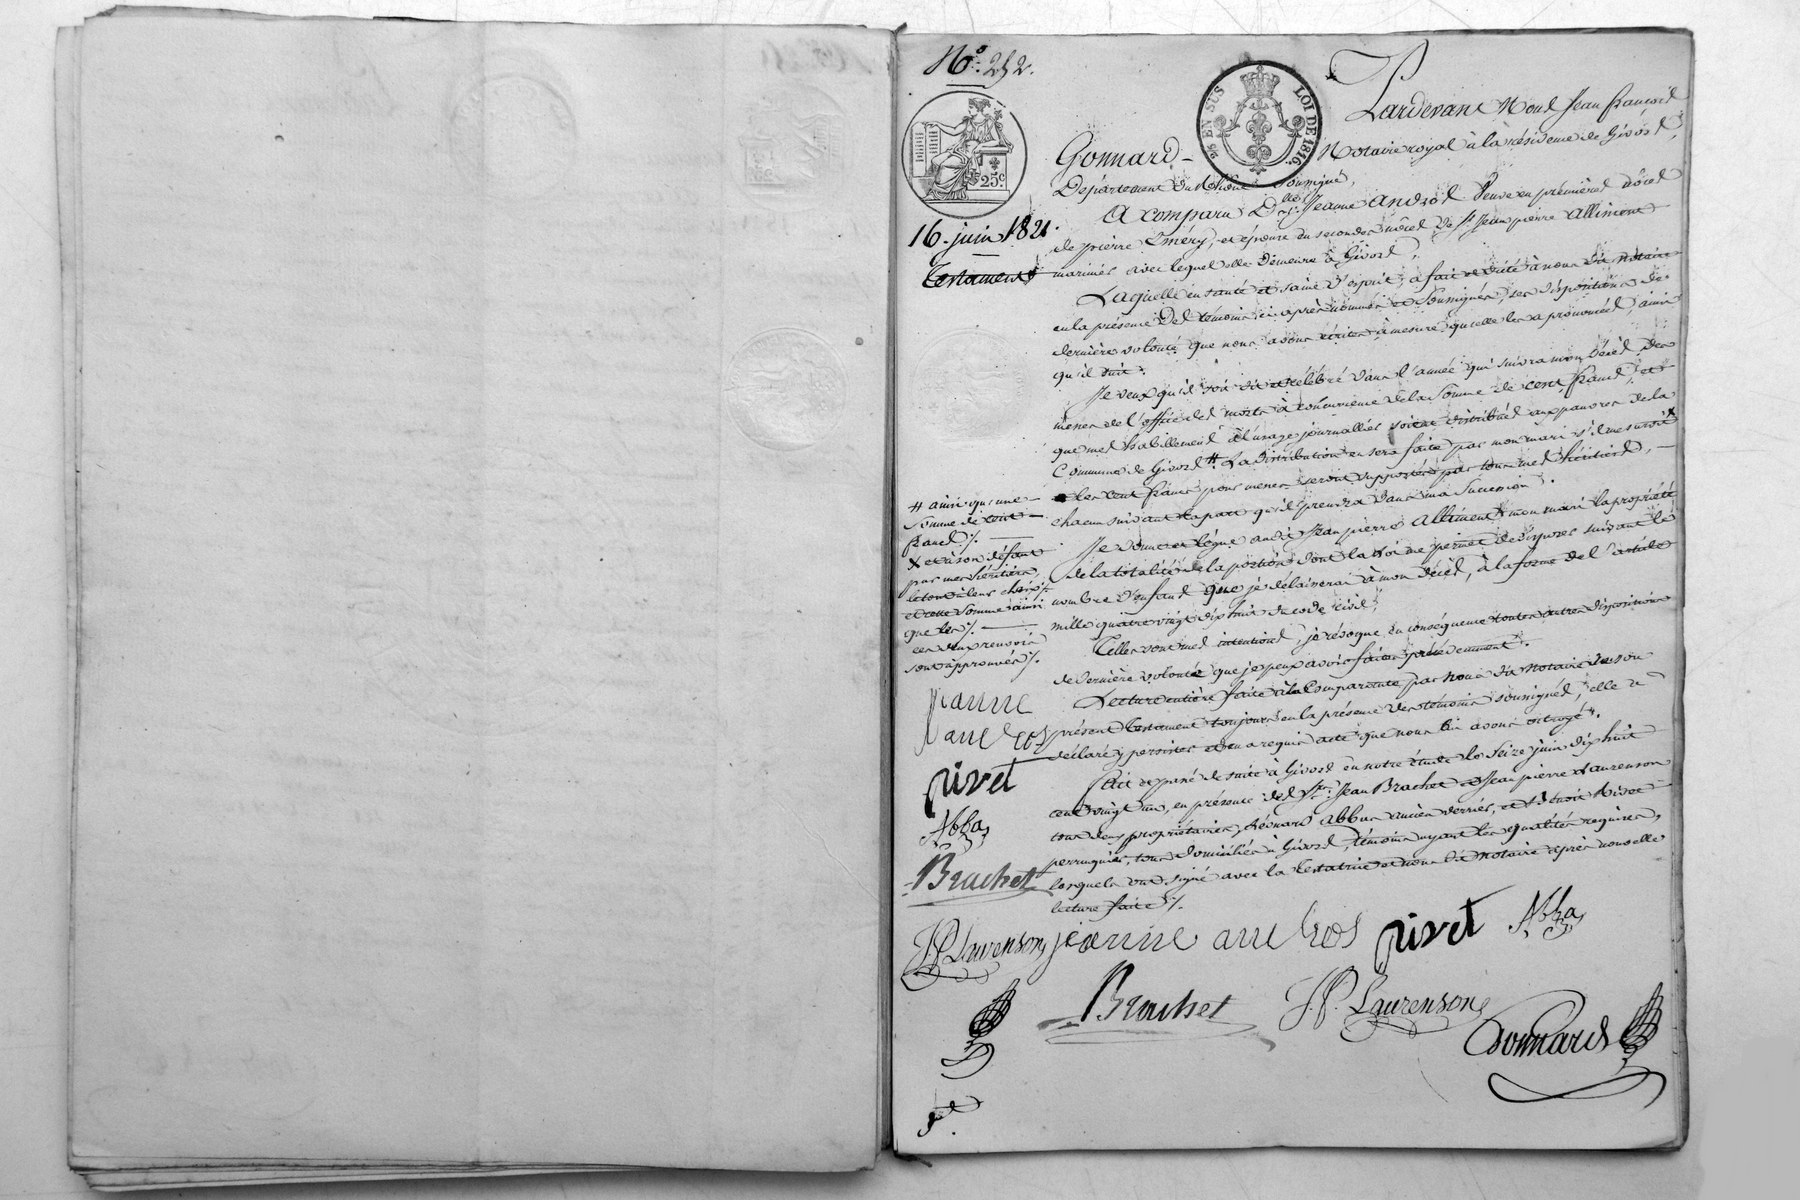 N.° 252.
25 EN SUS
LOI DE 1816.
25.c
16. juin 1821.
Testament
Pardevant Nous Jean françois
Gonnard - Notaire royal à la résidence de Givors,
Département du Rhône soussigné,
A comparu D.me Jeanne Andros veuve en premières nôces
de pierre Eméry, et épouse en secondes nôces de S.r Jean pierre Alliment
marinier avec lequel elle demeure à Givors,
Laquelle en santé et saine d'esprit, a fait et dicté à nous dit Notaire
en la présence des temoins ci après nommés et soussignés, ses dispositions de
dernière volonté que nous avons écrites à mesure qu'elle les a prononcées, ainsi
qu'il suit.
Je veux qu'il soit dit et célébré dans l'année qui suivra mon décès des
messes de l'office des morts à concurrence de la somme de cent francs, et
que mes habillemens à l'usage journallier soient distribués aux pauvres de la
Commune de Givors #. La distribution en sera faite par mon mari s'il me survit X
les cent francs pour messes seront supportés par tous mes héritiers,
chacun suivant la part qu'il prendra dans ma succession.
Je donne et lègue audit Jean pierre Alliment mon mari la propriété
de la totalité de la portion dont la loi me permet de disposer suivant le
nombre d'enfans que je délaisserai à mon décès, à la forme de l'article
mille quatre vingt dix huit du code civil,
Telles sont mes intentions, je révoque en conséquence toutes autres dispositions
de dernière volonté que je peux avoir faites précédemment.
Lecture entière faite à la Comparante par nous dit Notaire de son
présent testament toujours en la présence des témoins soussignés, elle a
déclaré y persister et en a requis acte que nous lui avons octroyé.
fait et passé de suite à Givors en notre étude le seize juin dix huit
cent vingt un, en présence des S.rs Jean Brachet et Jean pierre Laurenson
tous deux propriétaires, Léonard Abba ancien verrier, et Benoit Rivet
perruquier, tous domiciliés à Givors, témoins ayant les qualités requises,
lesquels ont signé avec la testatrice et nous dit Notaire après nouvelle
lecture faite ./.
# ainsi qu'une
somme de cent
francs ./.
X et à son défaut
par mes héritiers
le tout à leur choix ./.
et cette somme ainsi
que les ./.
ces deux renvois
sont approuvés ./.
jeanne
andros
rivet
Abba
Brachet
J.P. Laurenson
jeanne andros rivet Abba
Brachet J.P. Laurenson
Gonnard